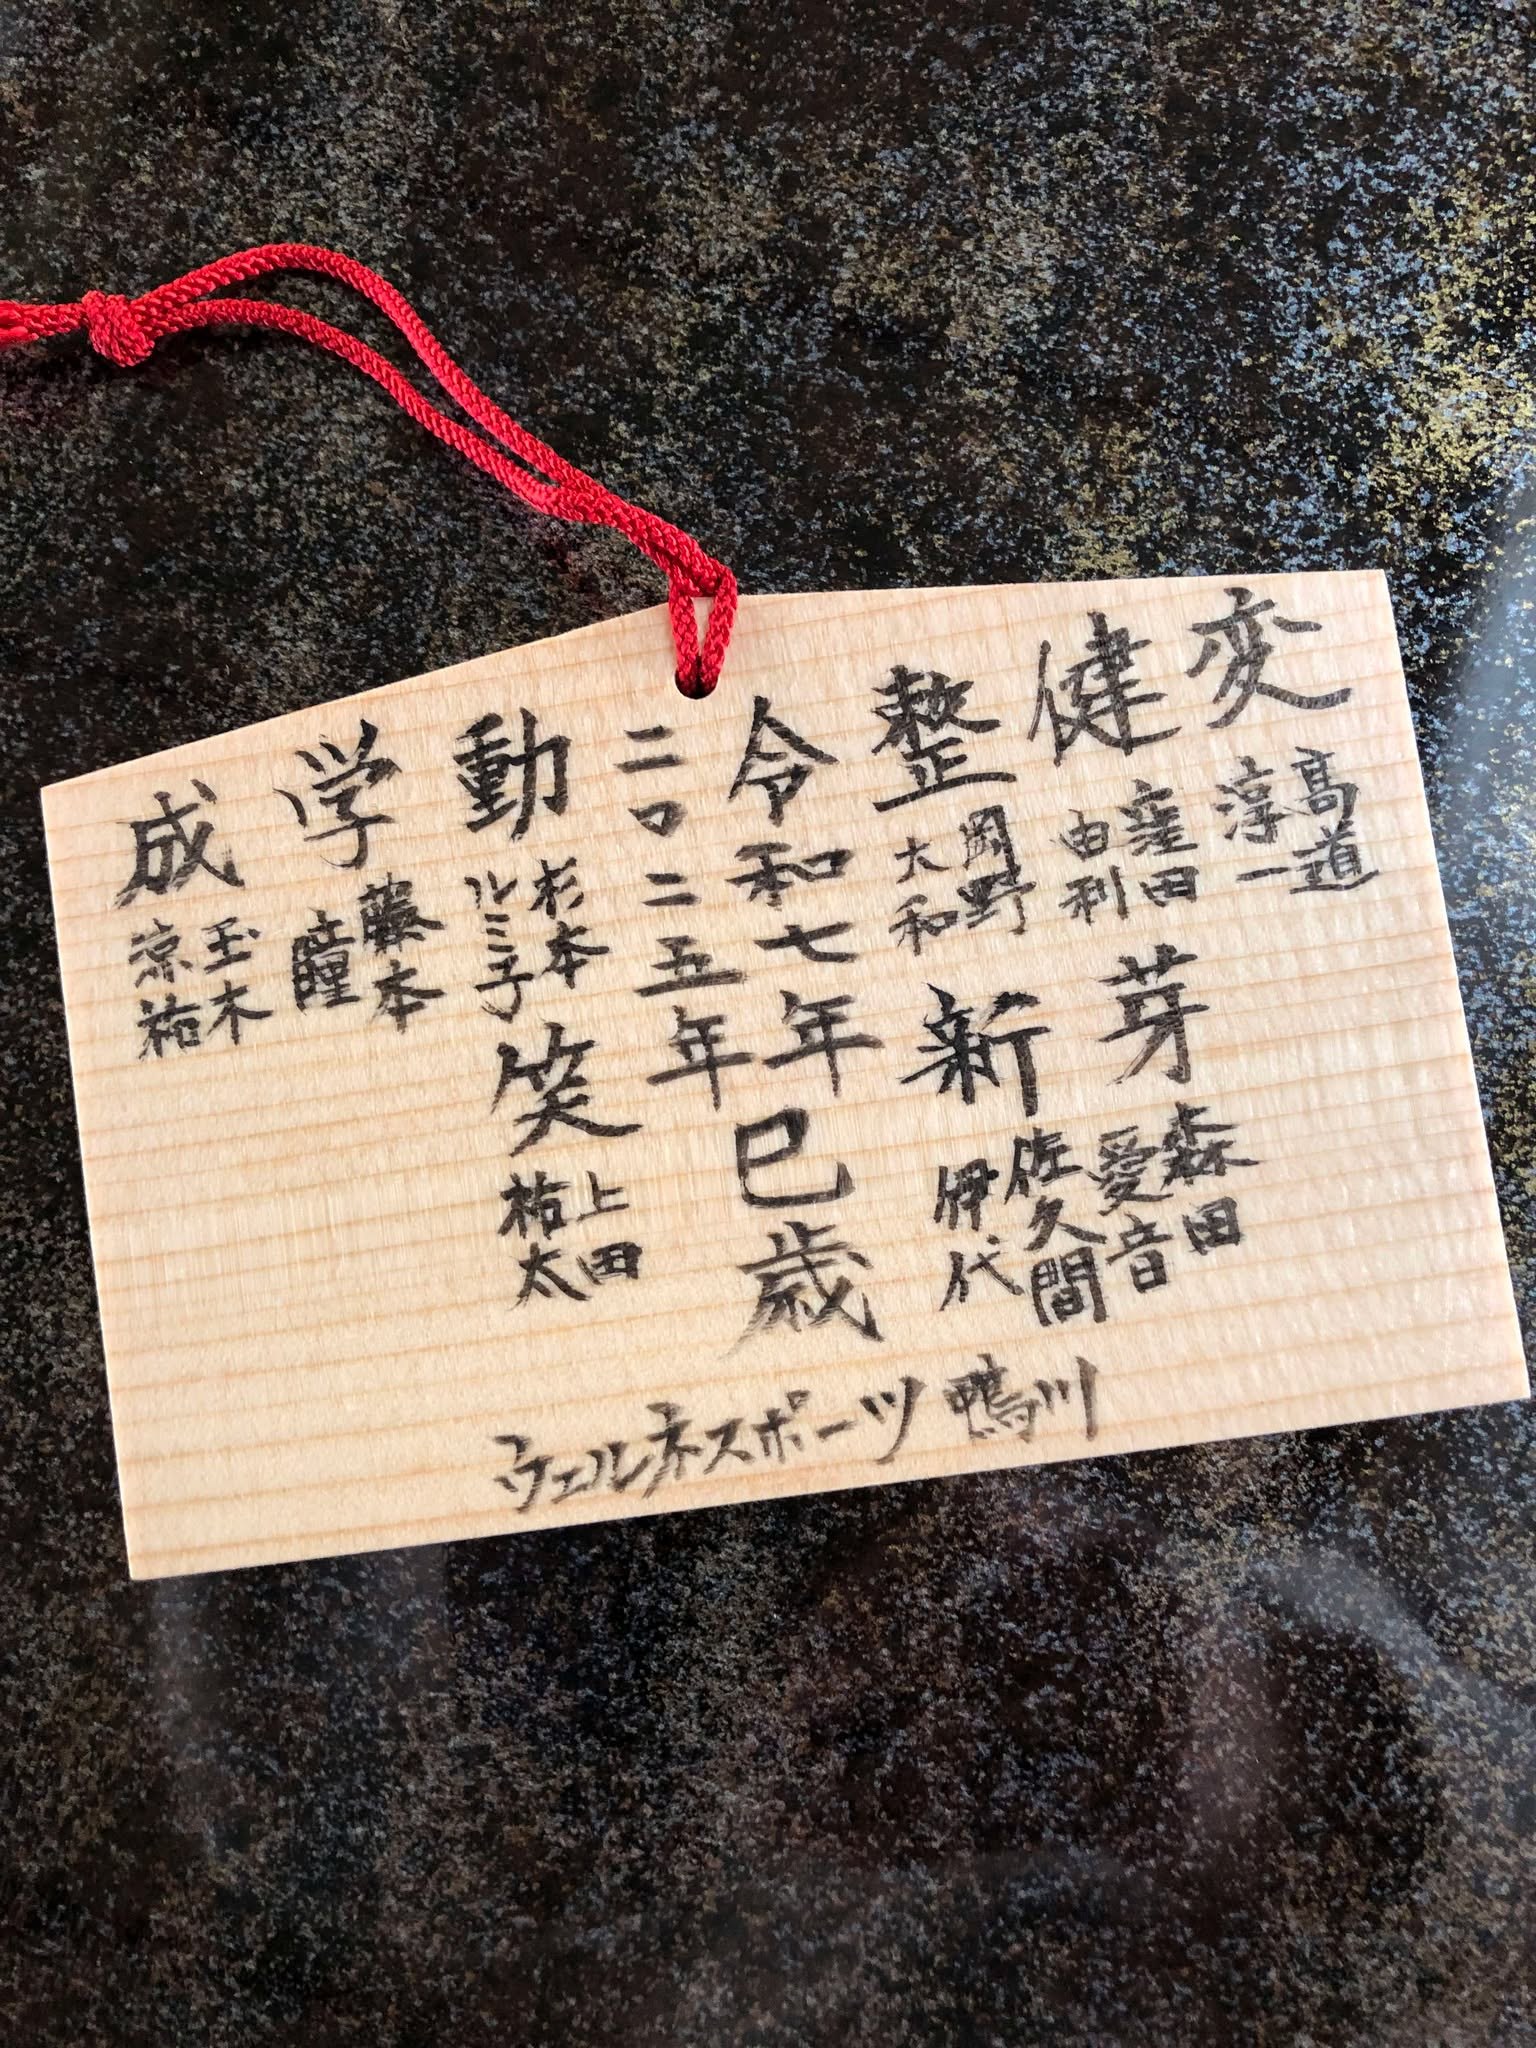 変
高道
淳一
健
窪田
由利
芽
森田
愛音
整
岡野
大和
新
佐久間
伊代
令和七年巳歳
二〇二五年
動
杉本
ルミ子
笑
上田
祐太
学
藤本
瞳
成
玉木
涼祐
ウェルネスポーツ鴨川